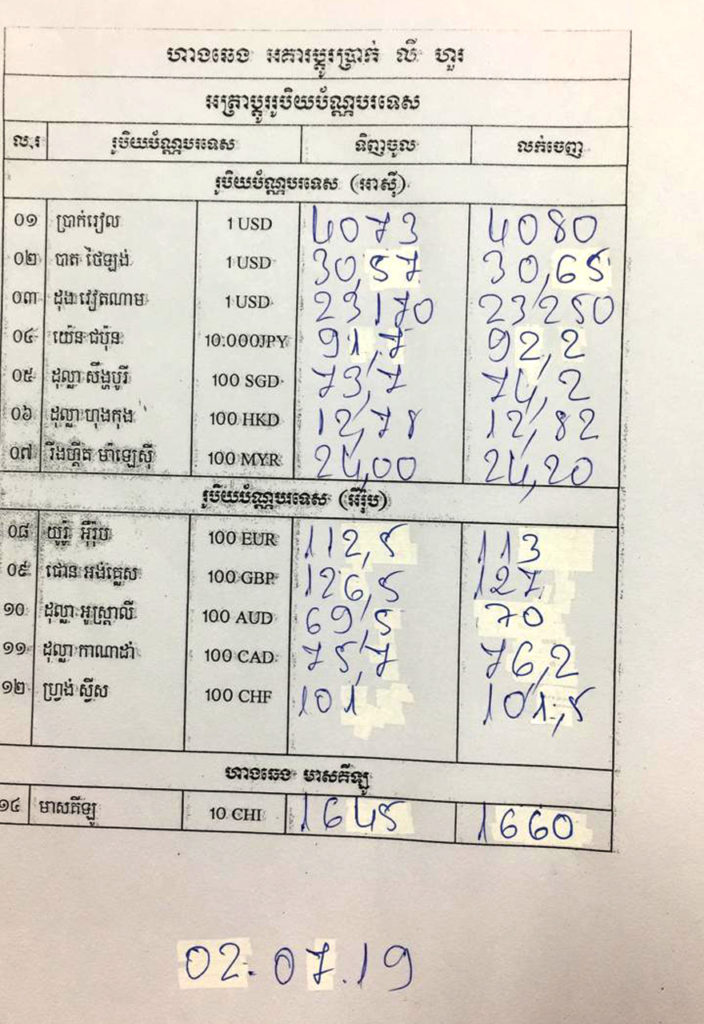 ហាងឆេង អគារប្តូរប្រាក់ លី ហួរ
អត្រាប្តូររូបិយប័ណ្ណបរទេស
ល.រ រូបិយប័ណ្ណបរទេស ទិញចូល លក់ចេញ
រូបិយប័ណ្ណបរទេស (អាស៊ី)
០១ ប្រាក់រៀល 1 USD 4073 4080
០២ បាត ថៃឡង់ 1 USD 30,57 30,65
០៣ ដុង វៀតណាម 1 USD 23170 23250
០៤ យ៉េន ជប៉ុន 10.000JPY 91,7 92,2
០៥ ដុល្លា សឹង្ហបូរី 100 SGD 73,7 74,2
០៦ ដុល្លា ហុងកុង 100 HKD 12,78 12,82
០៧ រីងហ្គីត ម៉ាឡេស៊ី 100 MYR 24,00 24,20
រូបិយប័ណ្ណបរទេស (អឺរ៉ុប)
០៨ យូរ៉ូ អ៊ឺរ៉ុប 100 EUR 112,5 113
០៩ ផោន អង់គ្លេស 100 GBP 126,5 127
១០ ដុល្លា អូស្ត្រាលី 100 AUD 69,5 70
១១ ដុល្លា កាណាដា 100 CAD 75,7 76,2
១២ ហ្វ្រង់ ស្វីស 100 CHF 101 101,5
ហាងឆេង មាសគីឡូ
១៤ មាសគីឡូ 10 CHI 1645 1660
02.07.19